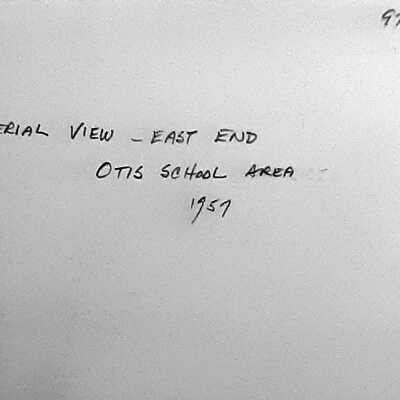 ERIAL VIEW - EAST END
OTIS SCHOOL AREA
1957